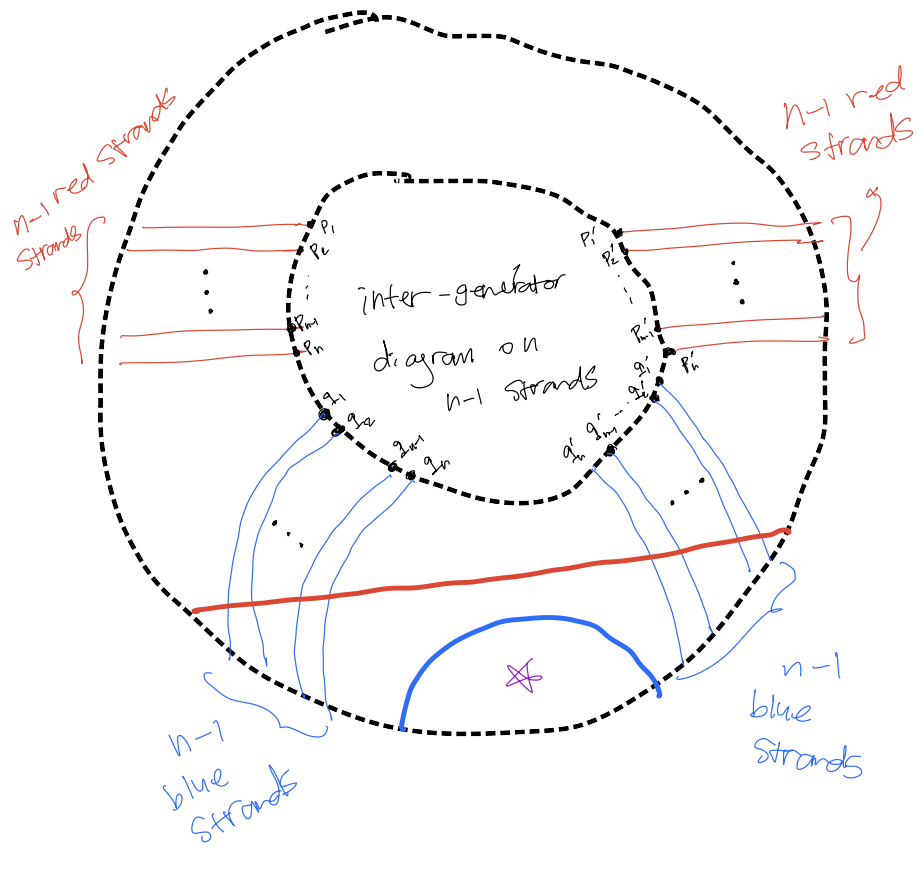 n-1 red strands
strands
n-1 red
strands
P1
P2
Pn-1
Pn
P1'
P2'
Pn-1'
Pn'
inter-generator
diagram on
n-1 strands
q1
q2
qn-1
qn
q1'
q2'
qn-1'
qn'
n-1
blue
strands
n-1
blue
strands